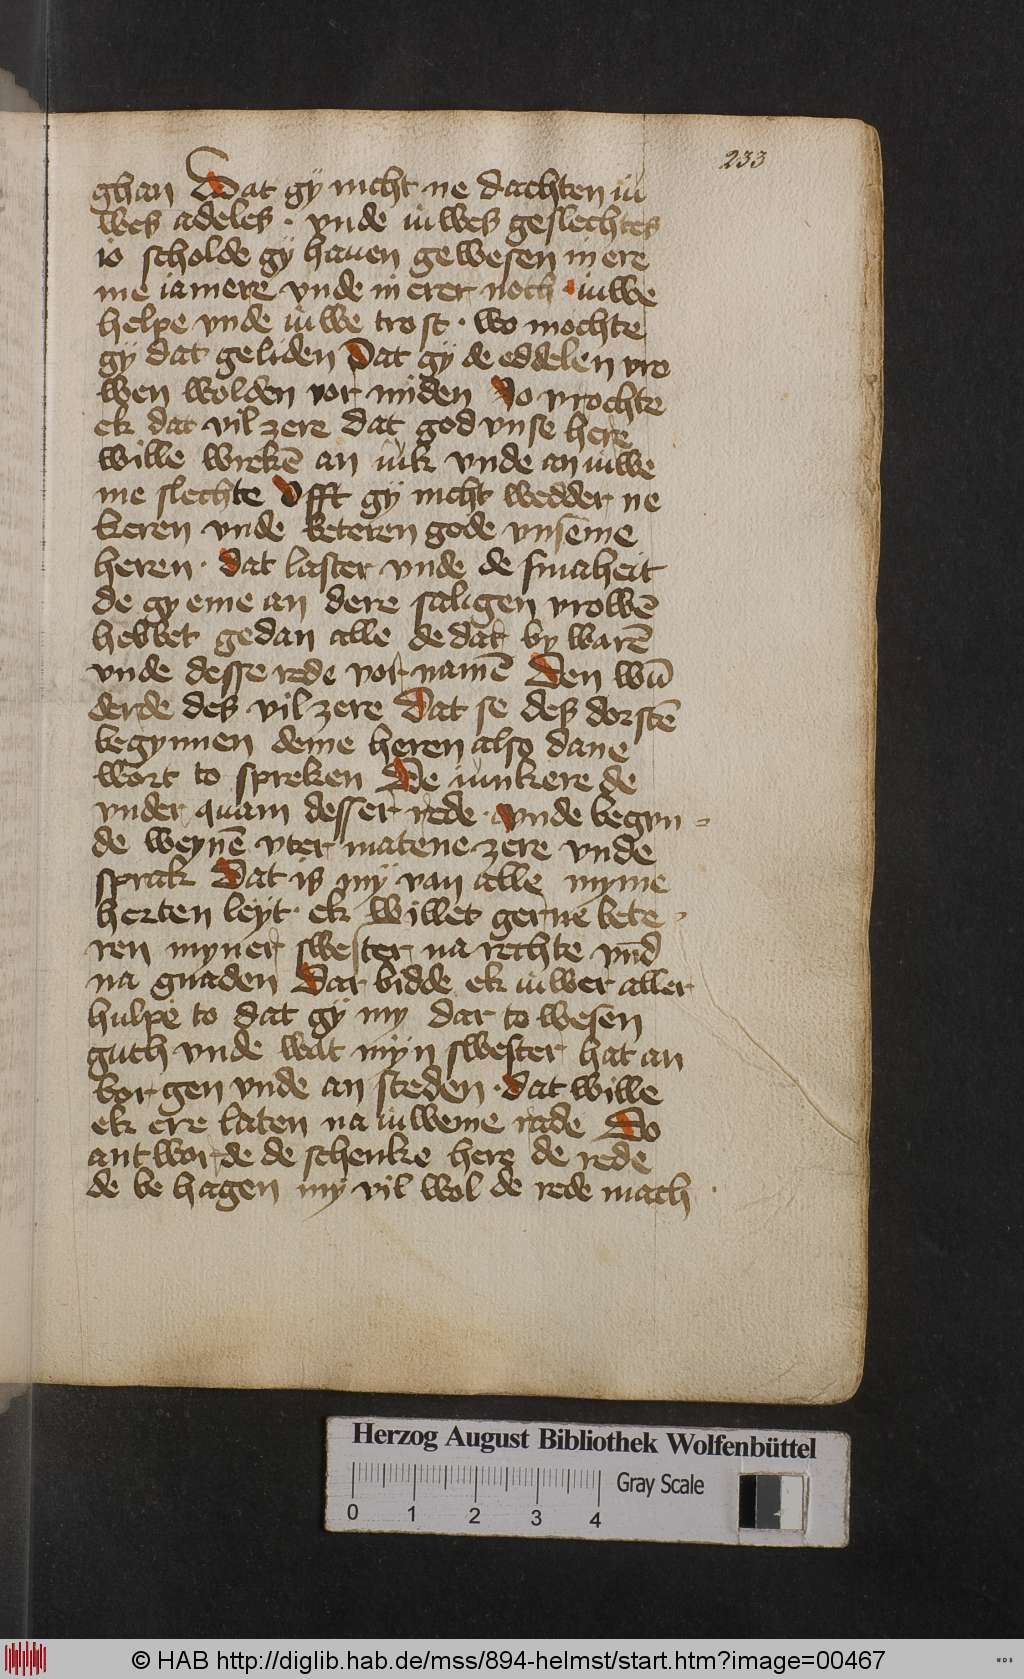 233
ghan Dat gÿ nicht ne dachten iu
wes adeles · vnde iuwes geslechtes
io scholde gÿ hauen gewesen in ere
me iamere vnde in erer noth · iuwe
helpe vnde iuwe trost · wo mochte
gÿ dat geliden Dat gÿ de eddelen vro
wen wolden vor miden Jo vrochte
ek dat vil zere dat god vnse here
wille wrekē an iuk vnde an iuwe
me slechte Offt gÿ nicht wedder ne
keren vnde beteren gode vnseme
heren · dat laster vnde de smaheit
de gy eme an dere saligen vrowē
hebbet gedan alle de dat by warē
vnde desse rede vor namē Den wū
derde des vil zere Dat se des dorstē
begynnen deme heren also dane
wort to spreken De iunkere de
vnder quam desser rede · vnde begvn =
de weynē vter matene zere vnde
sprak Dat is mÿ van alle myme
herten leyt · ek willet gerne bete
ren myner swester na rechte vnd
na gnaden Dar bidde ek iuwer aller
hulpe to dat gÿ my dar to wesen
guth vnde wat mÿn swester hat an
borgen vnde an steden · dat wille
ek ere laten na iuweme rade Do
antworde de schenke here de rede
de be hagen mÿ vil wol de rede mach
Herzog August Bibliothek Wolfenbüttel
Gray Scale
0 1 2 3 4
© HAB http://diglib.hab.de/mss/894-helmst/start.htm?image=00467